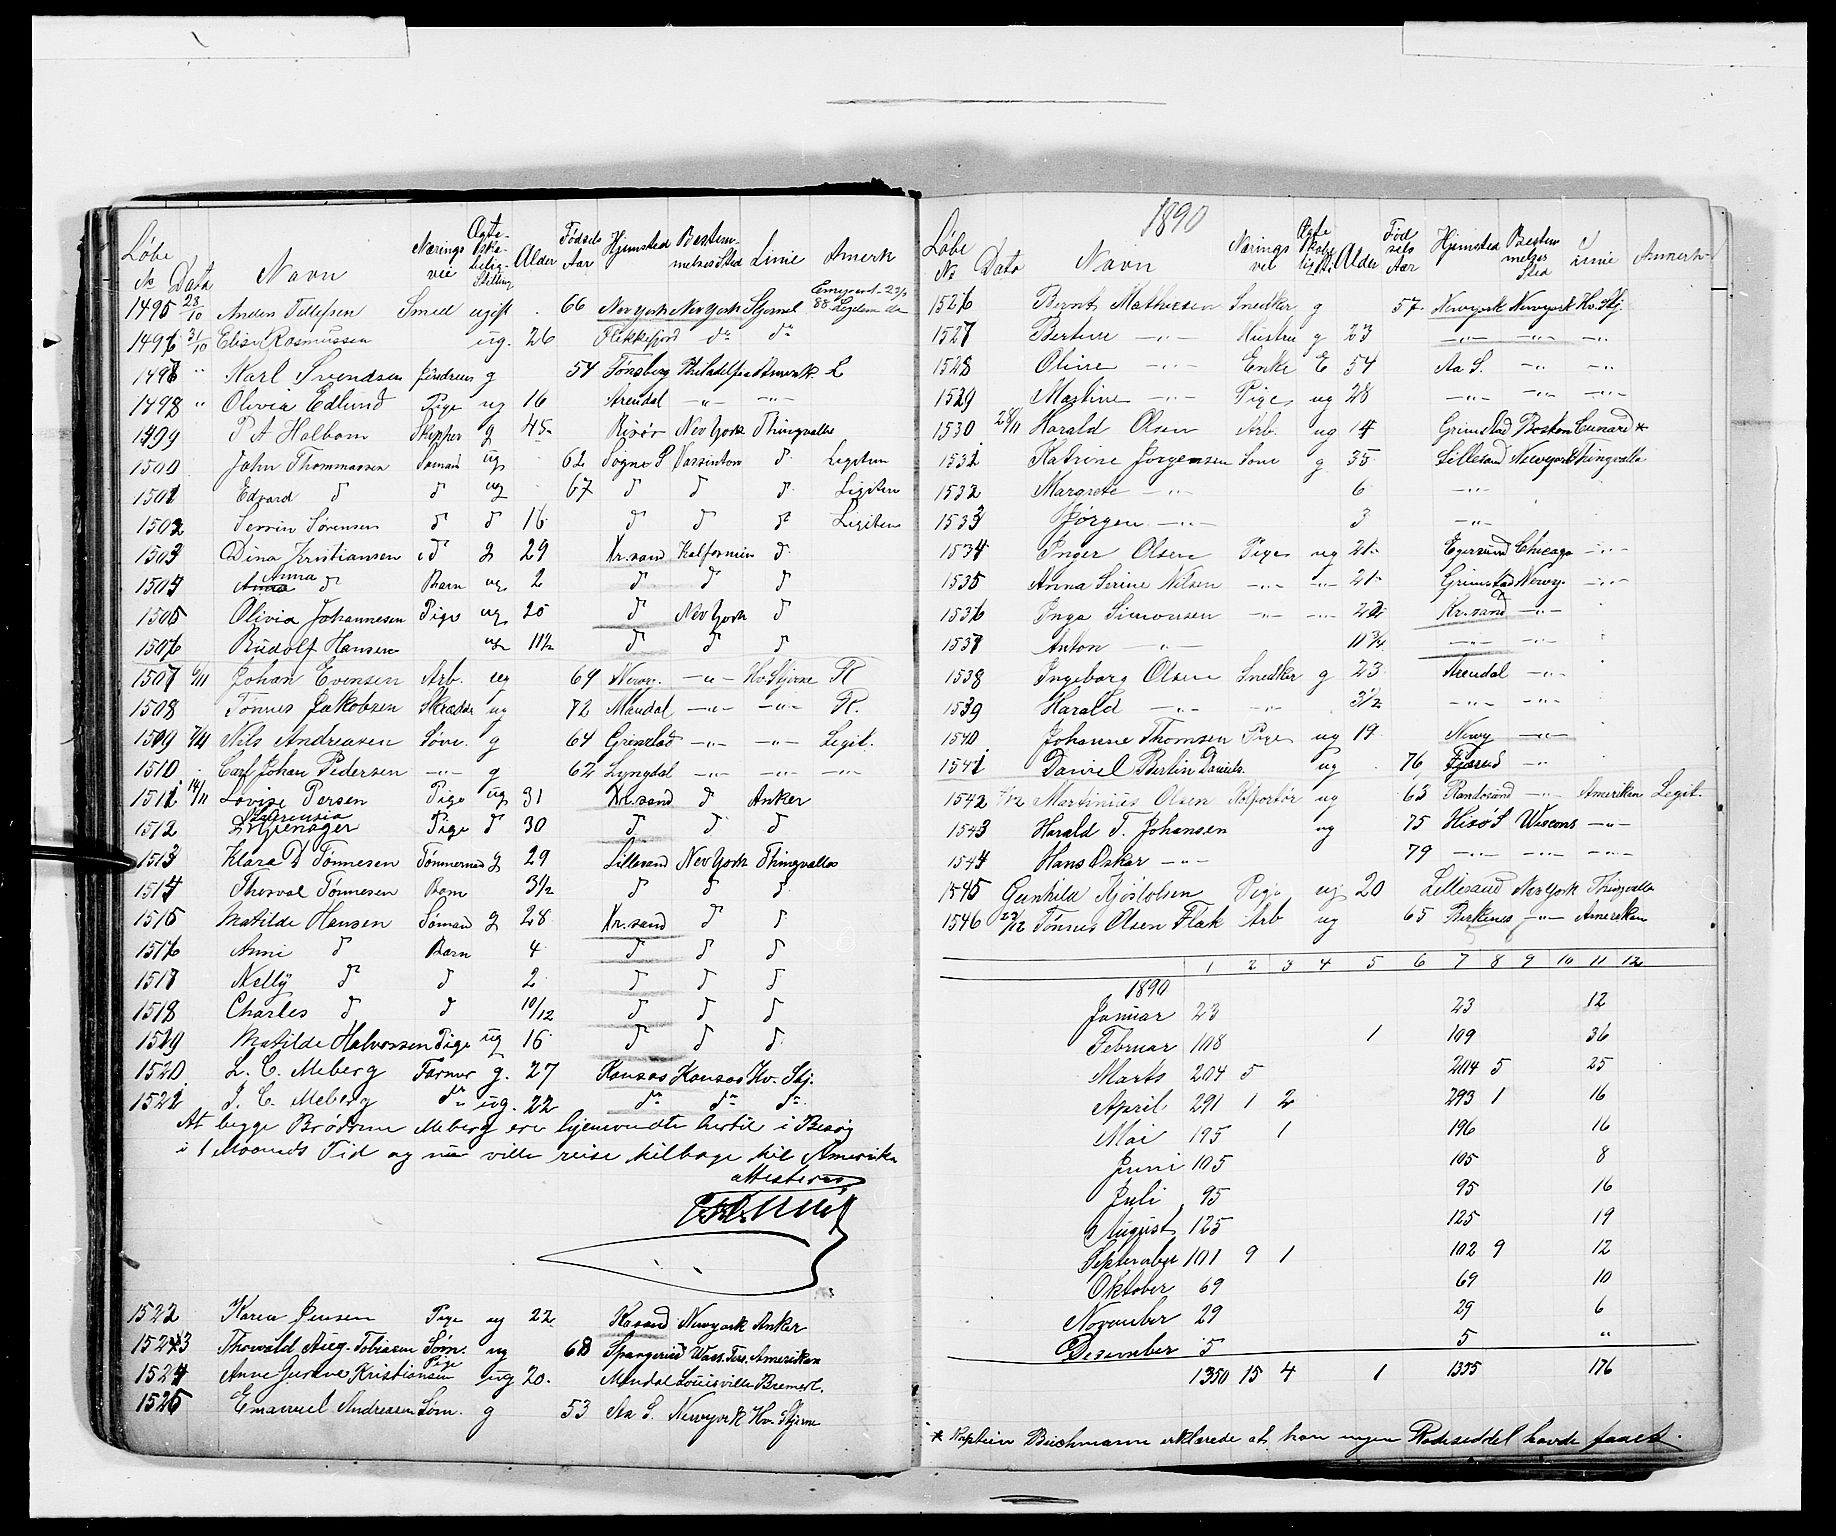 Løbe № Data Navn Nærings vei Ægte- skabelig Stilling Alder Fødsels Aar Hjemsted Bestem- melses Sted Linie Anmerk
1495 28/10 Anders Tellefsen Smed ugift . 66 Nev york Nev York Stjernel Emigrant 88 Legitim
1496 31/10 Elise Rasmussen ug. 26 Flekkefjord do do
1497 " Karl Svendsen g 54 Tønsberg Philadelfia Amerik. L
1498 " Olivia Edlund Pige ug 16 Arendal -"- -"-
1499 P A Halbom Skipper g 45 Risør Nev York Thingvalla
1500 John Thommassen Sømand ug 62 Sogne S Vassinton d Legitim
1501 Edvard d d ug 67 d d d Legitim
1502 Servin Sørensen d d 16 d d d Legitim
1503 Dina Kristiansen d g 29 Kr.sand Kalfornien d
1504 Anna d Barn ug 2 d d d
1505 Olivia Johannesen Pige ug 20 d Nev York d
1506 Rudolf Hansen ug 11½ d d d
1507 6/11 Johan Evensen Arb. ug 69 Newy. -"- Hv Stjerne R
1508 Tønnes Jakobsen Skrædder ug 72 Mandal -"- -"- R.
1509 7/11 Nils Andreasen Søm. g 64 Grimstad -"- -"- Legit.
1510 Carl Johan Pedersen -"- g 62 Lyngdal -"- -"- -"-
1511 14/11 Lovise Persen Pige ug 31 Kr.sand d Anker
1512 Laurensia Grenager Pige d 30 d d d
1513 Klara D Tønnesen Tømmermad g 29 Lillesand Nev York Thingvalla
1514 Thorval Tønnesen Barn 3½ d d d
1515 Matilde Hansen Sømand g 28 Kr.sand d d
1516 Anni d Barn 4 d d d
1517 Nelly d d 2 d d d
1518 Charles d d 10/12 d d d
1519 Matilde Halvorssen Pige ug 16 d d d
1520 L. C. Meberg Farmer g. 27 Kansas Kansas Hv. Stj.
1521 J. C. Meberg do ug. 22 do do do
At begge Brødrene Meberg ere hjemvendte hertil i Besøg
i 1 Maaneds Tid og nu ville reise tilbage til Amerika
attesteres
1522 Karen Jensen Pige ug 22 Kr.sand Newyork Anker
1523 Thorvald Aug. Tobiasen Søm. ug 68 Spangereid Wass. Ters. Amerikan
1524 Anne Gurine Kristiansen Pige ug 20. Mandal Louisville Bremerl.
1525 Emanuel Andreasen Søm. g 53 Aa S. Newyork Hv. Stjerne
1890
Løbe № Dato Navn Nærings vei Ægte skabe lig St. Alder Fød sels Aar Hjemsted Bestem melses Sted Linie Anmerk
1526 Bernt Mathiesen Snedker g 57 Newyork Newyork Hv. Stj.
1527 Bertine -"- Hustru g 23 -"- -"- -"-
1528 Oline -"- Enke E 54 Aa S. -"- -"-
1529 Mastine -"- Pige ug 28 -"- -"- -"-
1530 28/11 Harald Olsen Arb. ug 17 Grimstad Boston Cunard *
1531 Katrine Jørgensen Søm g 35 Lillesand Newyork Thingvalla
1532 Margrete -"- 6 -"-
1533 Jørgen -"- 3 -"-
1534 Inger Olsen Pige ug 21 Egersund Chicago -"-
1535 Anna Serine Nilsen -"- -"- 21 Grimstad Newy. -"-
1536 Inga Simonsen -"- -"- 22 Kr.sand -"-
1537 Anton -"- 11¾ -"- -"-
1538 Ingeborg Olsen Snedker g 23 Arendal -"-
1539 Harald -"- -"- 3½ -"- -"-
1540 Johanne Thomsen Pige ug 19 Newy -"-
1541 Daniel Bertin Daniels. ug 76 -"-
1542 /12 Martinius Olsen Kolportør ug 63 Randøsund -"- Amerikan Legit.
1543 Harald T. Johansen ug 75 Hisø S Wiscons -"-
1544 Hans Oskar -"- 79 -"- -"- -"-
1545 Gunhild Kjøstolsen Pige ug 20 Lillesand Nev York Thingvalla
1546 23/12 Tønnes Olsen Flak Arb ug 65 Birkenes -"- Amerikan
1 2 3 4 5 6 7 8 9 10 11 12
1890
Januar 23 23 12
Februar 108 1 109 36
Marts 204 5 204 5 25
April 291 1 2 293 1 16
Mai 195 1 196 16
Juni 105 105 8
Juli 95 95 16
August 125 125 19
September 101 9 1 102 9 12
Oktober 69 69 10
November 29 29 6
Desember 5 5 "
1350 15 4 1 1355 176
* Kaptein Buchmann erklærede at han ingen Rodeseddel havde faaet.